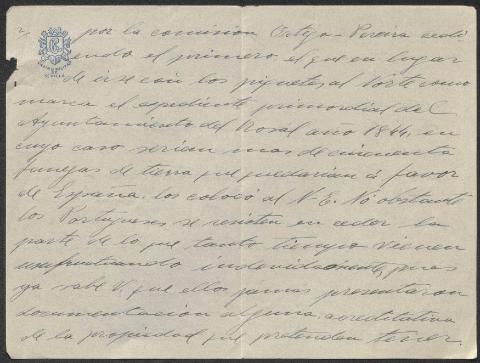 2/ por la comision Ortega-Pereira cedi
endo el primero el que en lugar
de irse con los piquetes al Norte como
marca el espediente primordial del
Ayuntamiento del Rosal año 1844, en
cuyo caso serian mas de cincuenta
fanegas de tierra que quedarian á favor
de España, los colocó al N-E. Nó obstante
los Portugueses se resisten en ceder la
parte de lo que tanto tiempo vienen
usufructuando indevidamente, pues
ya sabe V. que ellos jamas presentaron
documentacion alguna, acreditativa
de la propiedad que pretenden tener.